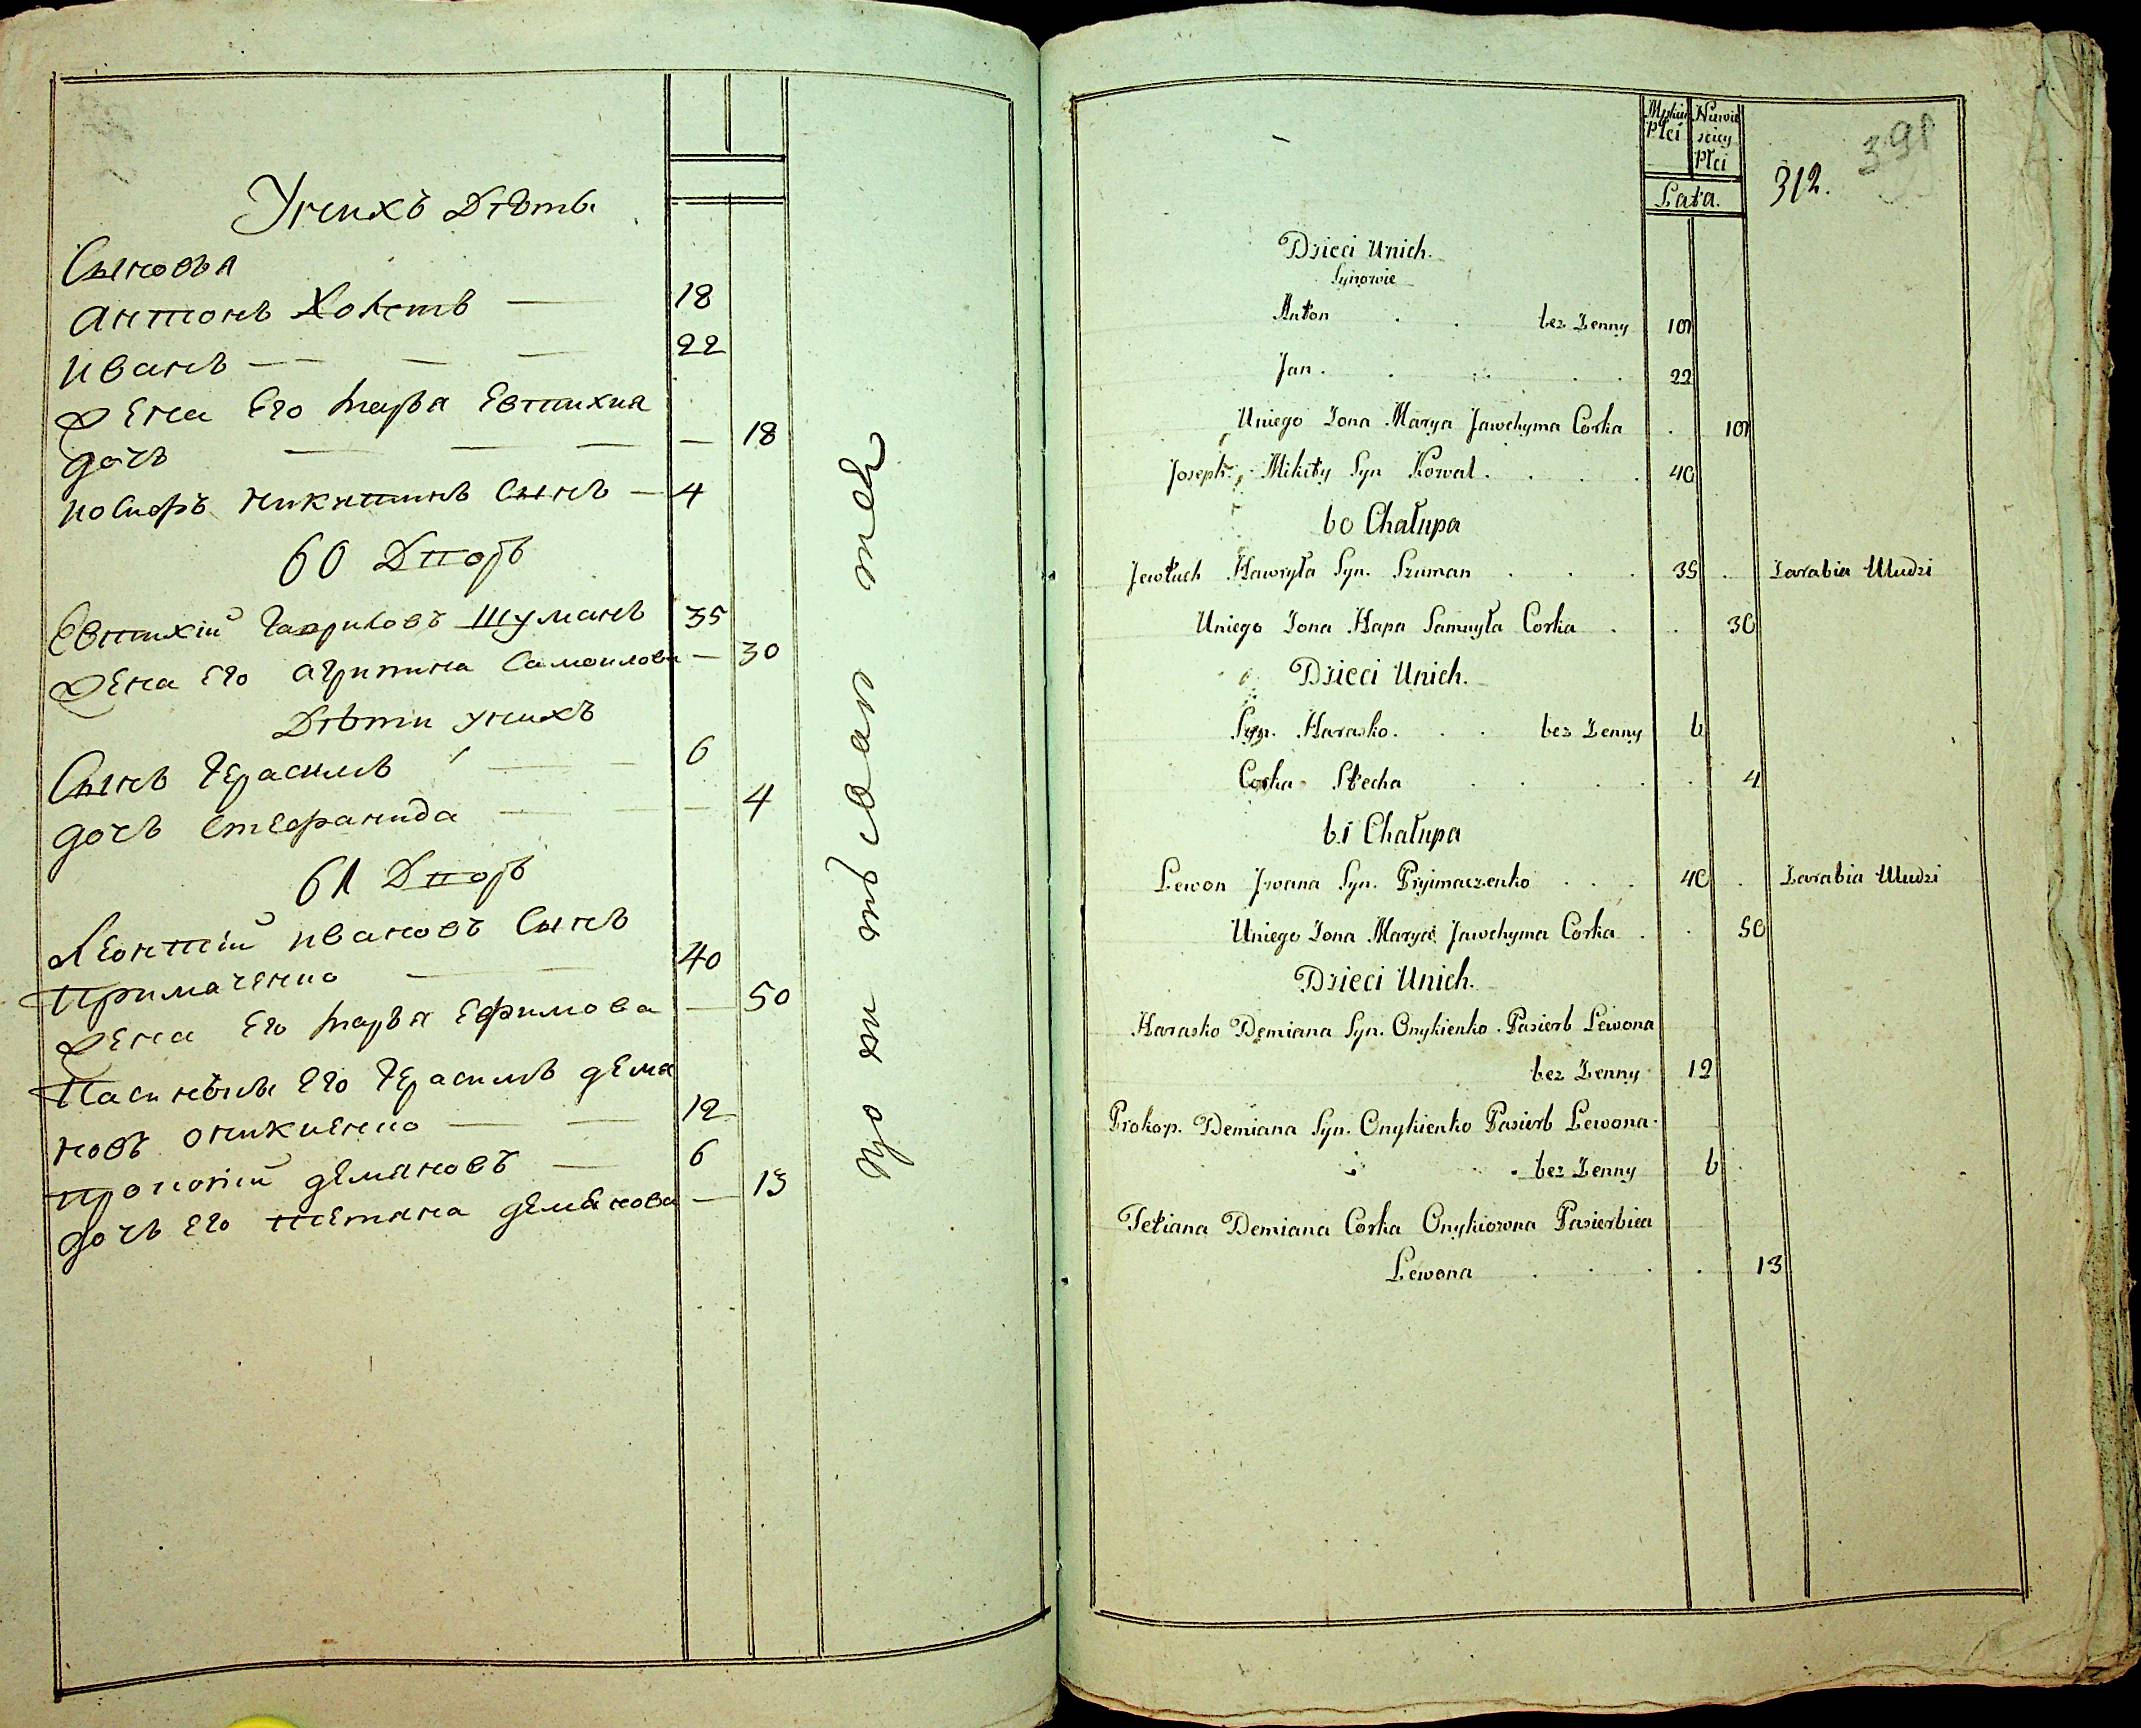 Унихъ Дѣти
Сыновья
Антонъ Холетъ — 18
Иванъ — — — 22
Жена Его Марья Евтихия
дочь — — — — 18
Иосифъ Никитинъ Сынъ — 4
60 Дворъ
Евтихій Гавриловъ Шуманъ 35
Жена Его Агрипина Самоилова — 30
Дѣти унихъ
Сынъ Герасимъ — — 6
дочь Стефанида — — — 4
61 Дворъ
Леонтій Ивановъ Сынъ
Примаченко — — 40
Жена Его Марья Ефимова — 50
Пасинъки Его Герасимъ дема
новъ Оникиенко — — 12
Прокопій демяновъ — 6
дочь Его Тетяна демьянова — 13
Męskiej Płci
Niewieściey Płci
Lata.
312.
391
Dzieci Unich.
Synowie
Anton . . bez Żenny 18
Jan . . . . . 22
Uniego Żona Marya Jawchyma Corka . 18
Joseph Mikity Syn Kowal . . . 40
60 Chałupa
Jewtuch Hawryła Syn. Szuman . . . 35 . Zarabia Uludzi
Uniego Żona Hapa Samuyła Corka . . 30
Dzieci Unich.
Syn. Harasko . . . bez Żenny 6
Corka Stecha . . . . . 4
61 Chałupa
Lewon Jwana Syn. Pryimaczenko . . . 40 . Zarabia Uludzi
Uniego Żona Marya Jawchyma Corka . . 50
Dzieci Unich.
Harasko Demiana Syn. Onykienko . Pasierb Lewona
bez Żenny 12
Prokop. Demiana Syn. Onykienko Pasierb Lewona.
bez Żenny 6
Tetiana Demiana Corka Onykiowna Pasierbica
Lewona . . . . 13